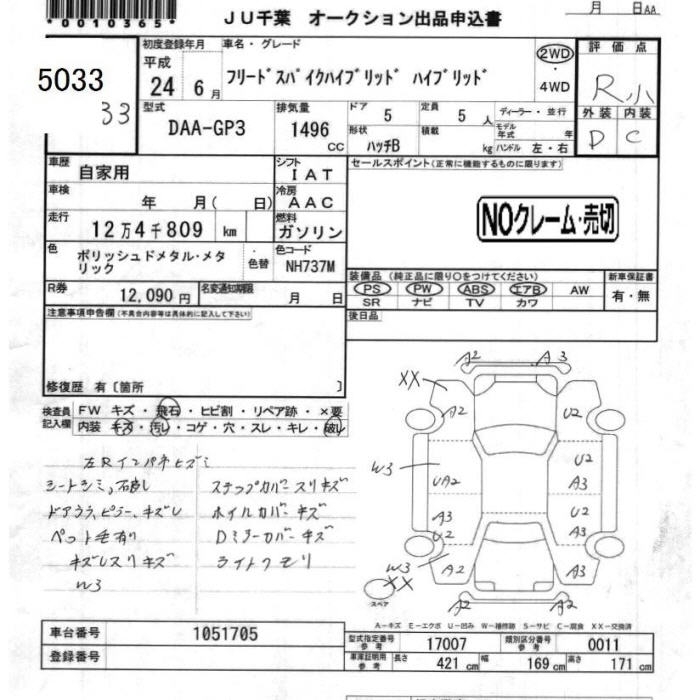 *0010365*
月 日AA
JU千葉 オークション出品申込書
5033
33
初度登録年月
平成
24 6月
車名・グレード
フリードスパイクハイブリッド ハイブリッド
2WD
・
4WD
評価点
R小
外装 内装
D C
型式
DAA-GP3
排気量
1496
CC
ドア
5
定員
5 人
形状
ハッチB
積載
kg
ディーラー・並行
モデル年式 年
ハンドル 左・右
車歴
自家用
シフト
IAT
車検
年 月( 日)
冷房
AAC
走行
12万4千809 km
燃料
ガソリン
色
ポリッシュドメタル・メタリック
・色替
色コード
NH737M
R券
12,090円
名変通知期限
月 日
セールスポイント(正常に機能するものに限ります)
NOクレーム・売切
装備品 (純正品に限り○をつけてください)
PS PW ABS エアB AW
SR ナビ TV カワ
新車保証書
有・無
後日品
注意事項申告欄(不具合内容等は具体的に記入して下さい)
修復歴 有〔箇所 〕
検査員記入欄
FW キズ・飛石・ヒビ割・リペア跡・×要
内装 キズ・汚レ・コゲ・穴・スレ・キレ・破レ
左Rインパネヒズミ
シートシミ、
ドアウラ、ピラー、キズレ
ペット毛有り
キズレスリキズ
W3
ステップカバースリキズ
ホイルカバーキズ
Dミラーカバーキズ
ライトクモリ
A2 A3
XX A2 U2
W3 UA2 U2 A3
A3 U2 U2 A3
W3 XX A2 A3
A2 A2
スペア
A-キズ E-エクボ U-凹み W-補修跡 S-サビ C-腐食 XX-交換済
車台番号
1051705
登録番号
型式指定番号
参考
17007
類別区分番号
参考
0011
車庫証明用
参考
長さ 421 cm 幅 169 cm 高さ 171 cm